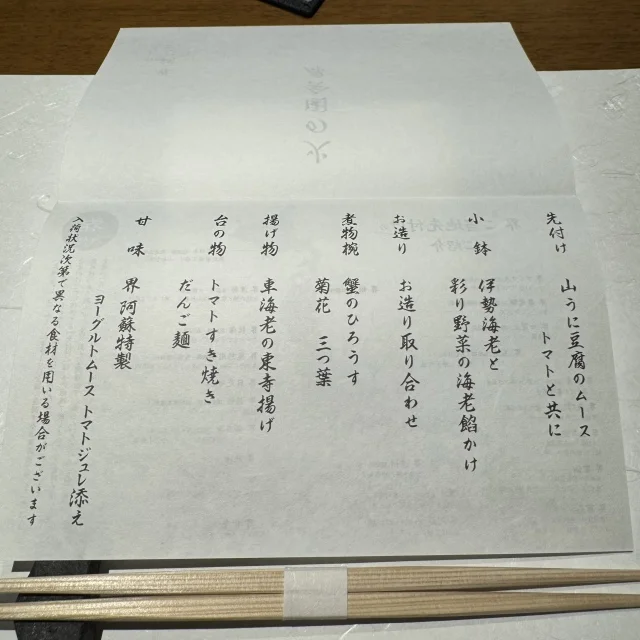 先付け 山うに豆腐のムース
トマトと共に
小鉢 伊勢海老と
彩り野菜の海老餡かけ
お造り お造り取り合わせ
煮物椀 蟹のひろうす
菊花 三つ葉
揚げ物 車海老の東寺揚げ
台の物 トマトすき焼き
だんご麺
甘味 界 阿蘇特製
ヨーグルトムース トマトジュレ添え
入荷状況次第で異なる食材を用いる場合がございます